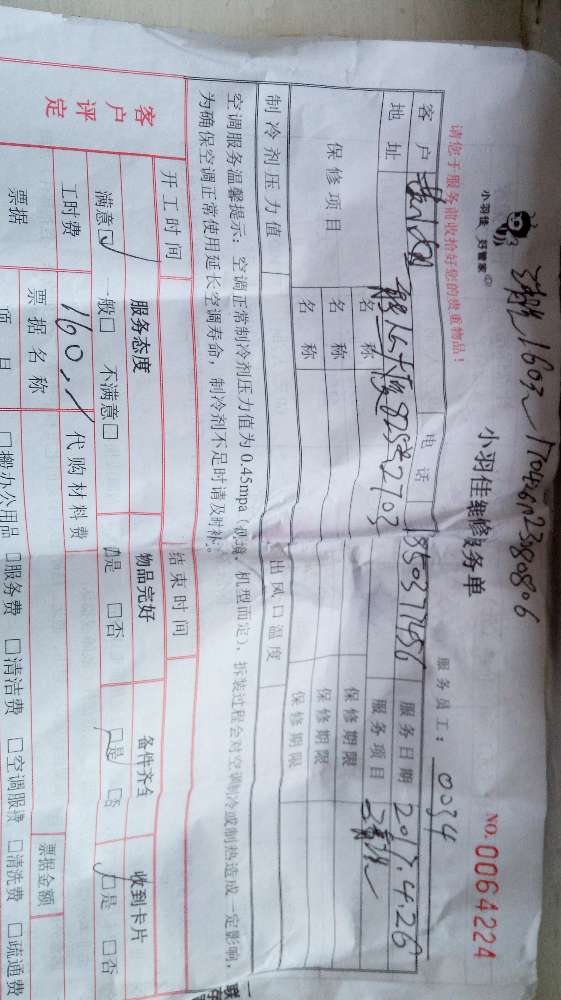 小羽佳 好管家
小羽佳维修服务单
NO. 0064224
请您于服务前收拾好您的贵重物品！
服务员工： 0034
客户 电话 服务日期 2017.4.26
地址 服务项目
保修项目 名称 保修期限
名称 保修期限
名称 保修期限
制冷剂压力值 出风口温度
空调服务温馨提示：空调正常制冷剂压力值为0.45mpa（环境、机型而定），拆装过程会对空调制冷或制热造成一定影响，
为确保空调正常使用延长空调寿命，制冷剂不足时请及时补。
开工时间 结束时间
客户评定
服务态度 物品完好 备件齐全 收到卡片
满意☑ 一般□ 不满意□ □是 □否 □是 □否 □是 □否
工时费 160 代购材料费
票据 票据名称 票据金额
项目 □搬办公用品 □服务费 □清洁费 □空调服费 □清洗费 □疏通费